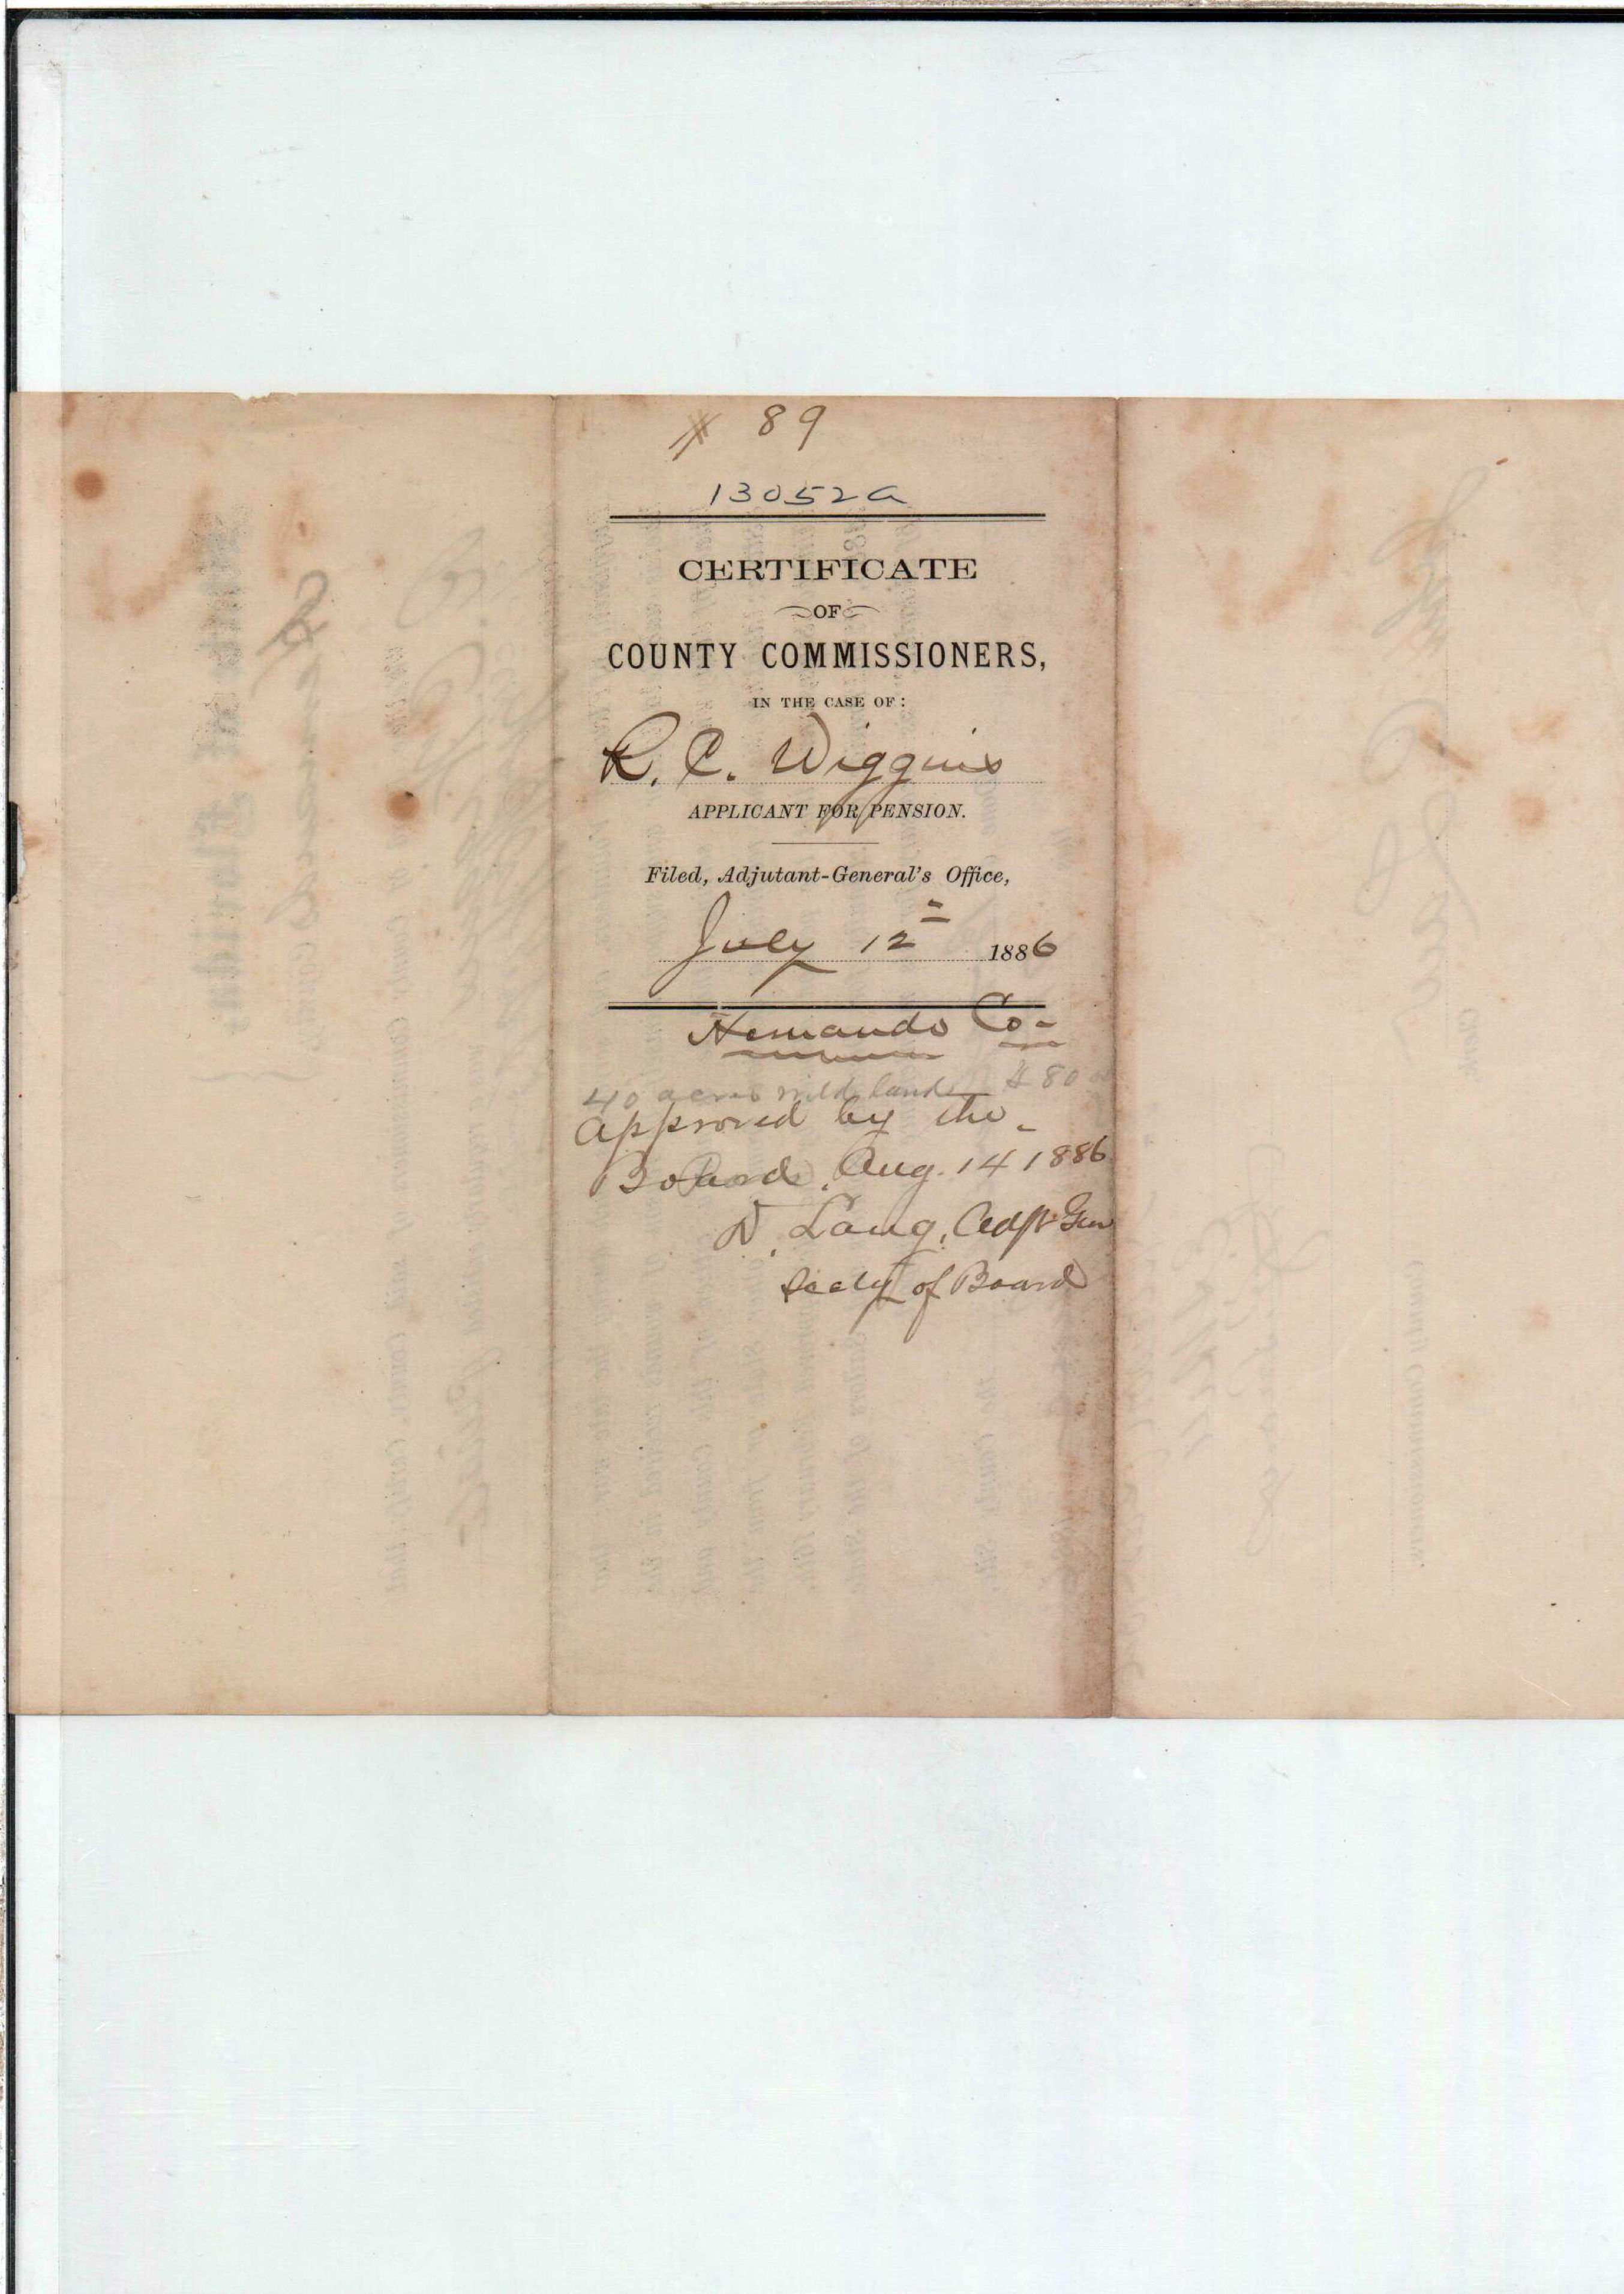 # 89
13052a
CERTIFICATE
OF
COUNTY COMMISSIONERS,
IN THE CASE OF:
R. C. Wiggins
APPLICANT FOR PENSION.
Filed, Adjutant-General's Office,
July 12 1886
Hernando Co-
40 acres wild land $ 80
Approved by the
Board, Aug. 14 1886
D. Lang, Adjt Gen
Secty of Board